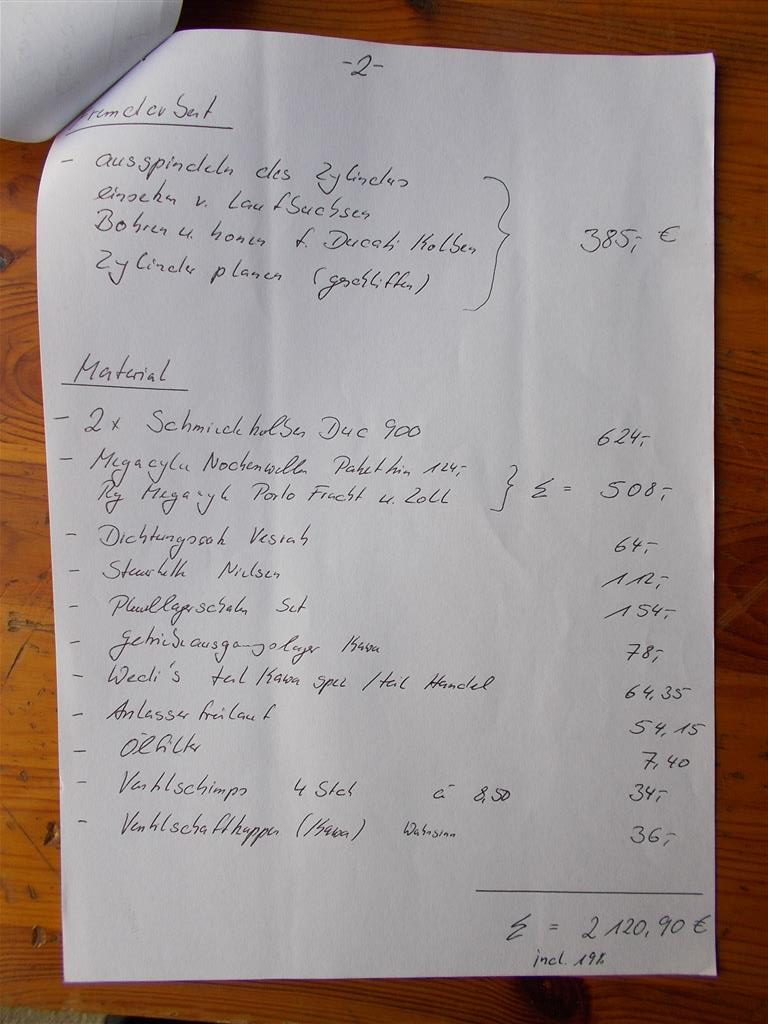 -2-
Fremdarbeit
- ausspindeln des Zylinders
einsetzen v. Laufbuchsen
Bohren u. honen f. Ducati Kolben
Zylinder planen (geschliffen)
385,- €
Material
- 2x Schmiedekolben Duc 900 624,-
- Megacycle Nockenwellen Paket hin 124,-
Rg Megacycle Porto Fracht u. Zoll } Σ = 508,-
- Dichtungssatz Vesrah 64,-
- Steuerkette 112,-
- Pleullagerschalen Set 154,-
- Getriebeausgangslager Kawa 78,-
- Wedi's teil Kawa spez / teil Handel 64,35
- Anlasserfreilauf 54,15
- Ölfilter 7,40
- Ventilschimps 4 Stck á 8,50 34,-
- Ventilschaftkappen (Kawa) Wahnsinn 36,-
Σ = 2120,90 €
incl. 19%